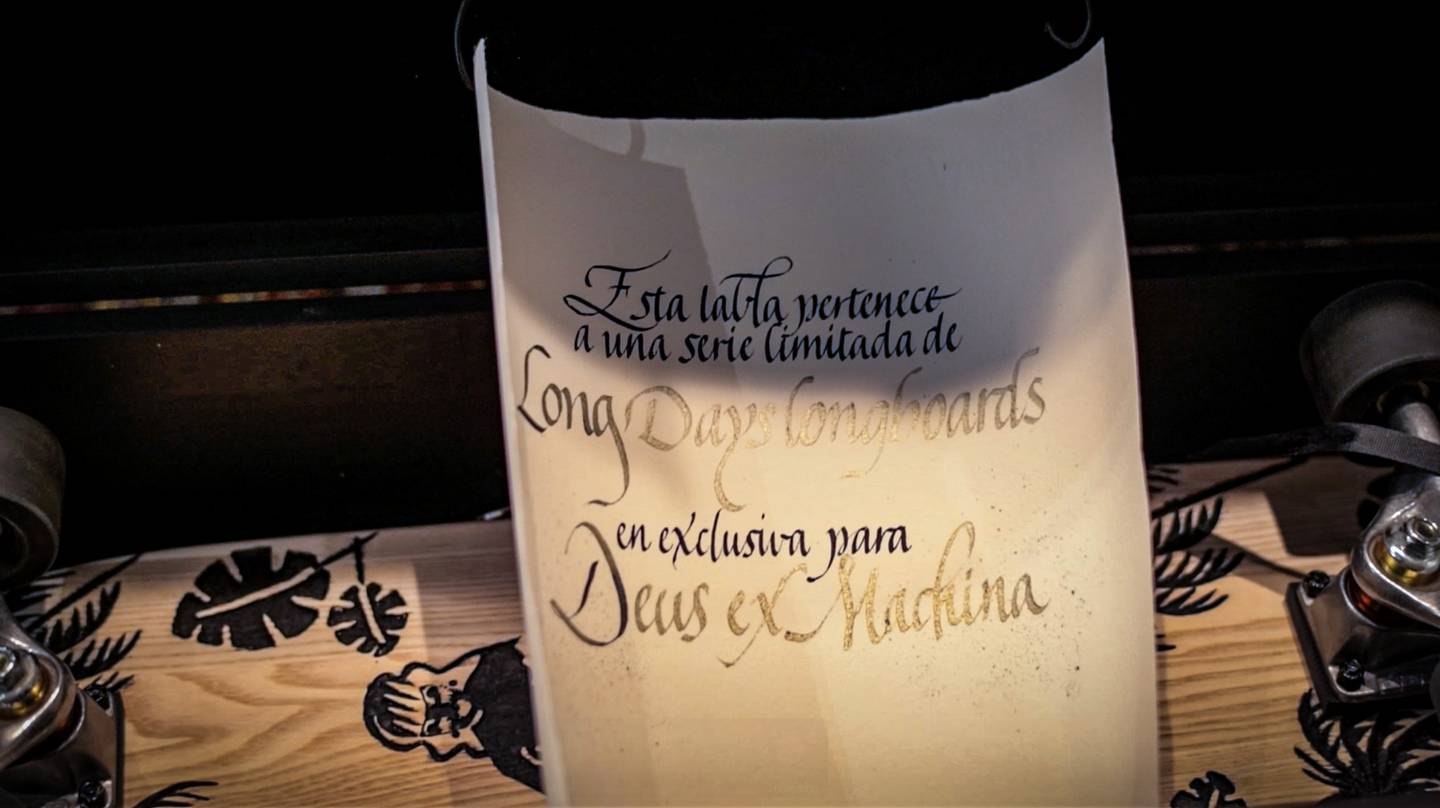 Esta tabla pertenece
a una serie limitada de
Long Days longboards
en exclusiva para
Deus ex Machina